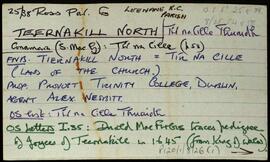 25/38 Ross Par. G LEENANE R.C. PARISH
TEERNAKILL NORTH Tír na Cille Thuaidh
Connemara (S. Mac G): Tír na Cille (p50)
FNB: TIERNAKILL NORTH = TÍR NA CILLE
(LAND OF THE CHURCH.)
PROP. PROVOST TRINITY COLLEGE, DUBLIN.
AGENT ALEX NESBITT.
OS Tír na Cille Thuaidh
OS letters I:35: David MacFirbis traces pedigree
of Joyces of Teernakill in 1645 (from King